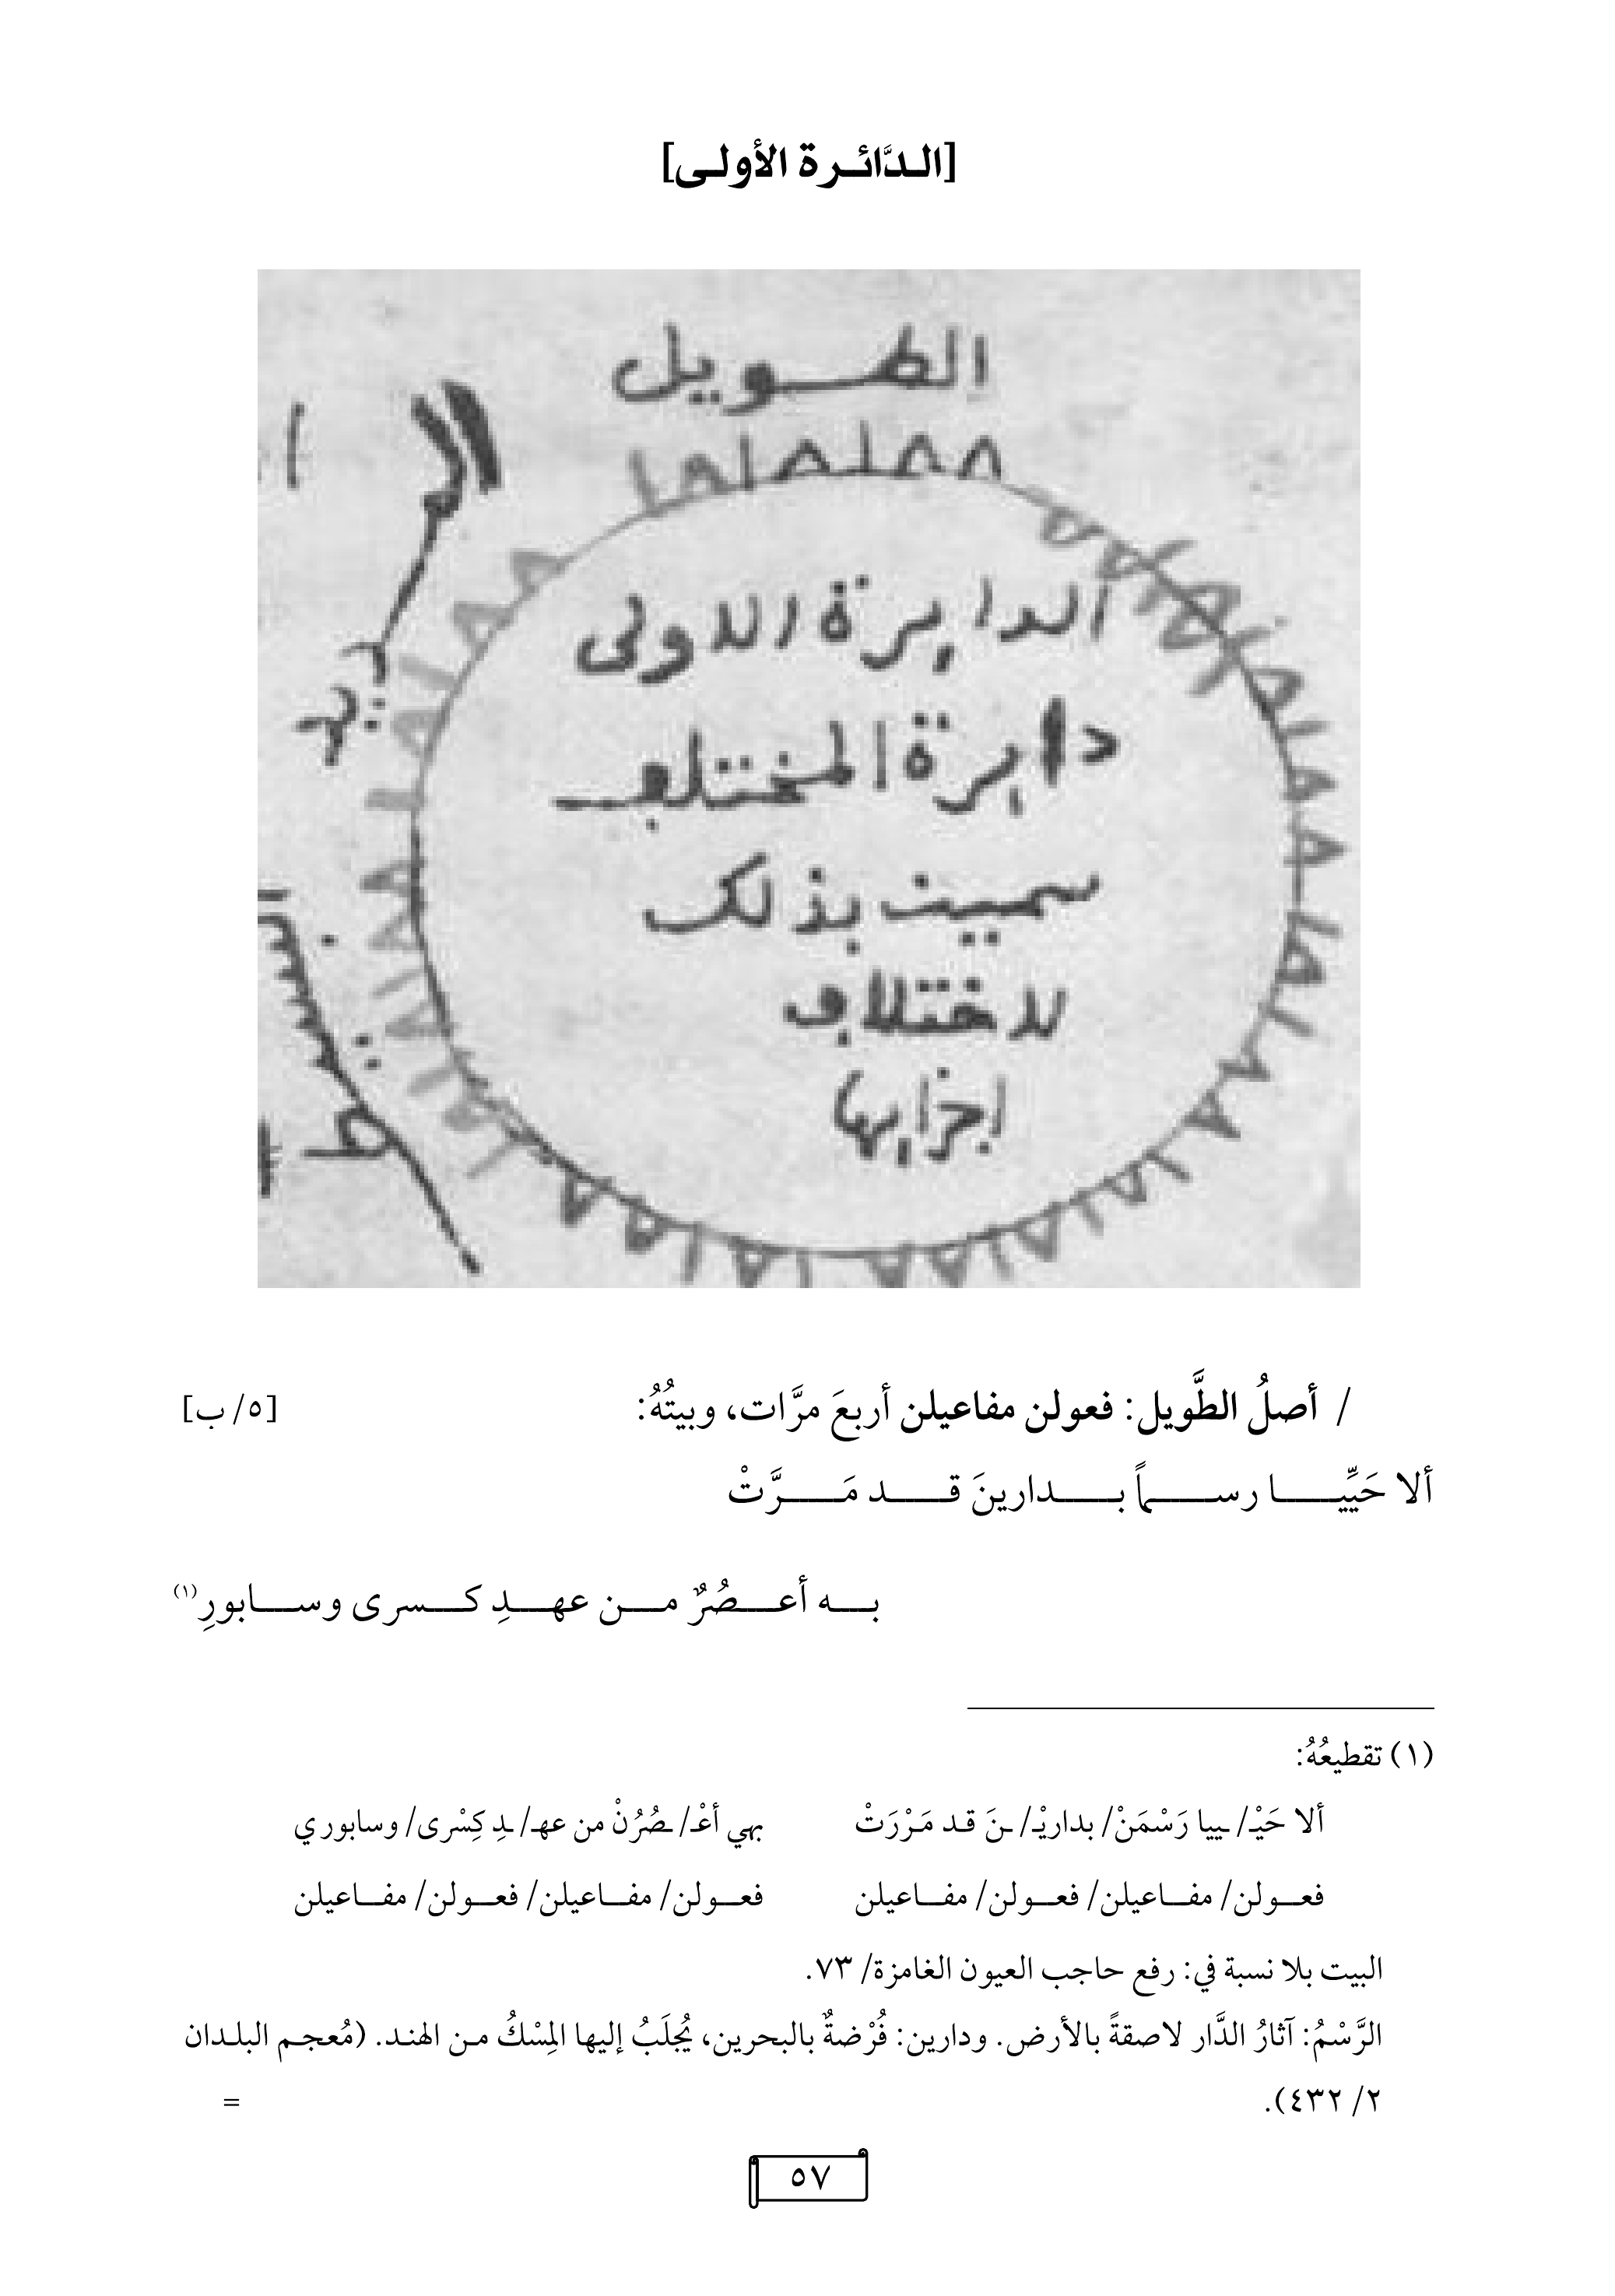 [الـدَّائـرة الأولـى]
الطويل
المديد
البسيط
الدايرة الاولى
دايرة المختلف
سميت بذلك
لاختلاف
اجزايها
/ أصلُ الطَّويل: فعولن مفاعيلن أربعَ مرَّات، وبيتُهُ: [٥/ ب]
ألا حَيِّيا رسماً بدارينَ قد مَرَّتْ
به أعصُرٌ من عهدِ كسرى وسابورِ(١)
(١) تقطيعُهُ:
ألا حَيْـ/ ـييا رَسْمَنْ/ بداريْـ/ ـنَ قد مَرْرَتْ بهي أعْـ/ ـصُرُنْ من عهـ/ ـدِ كِسْرى/ وسابوري
فعولن/ مفاعيلن/ فعولن/ مفاعيلن فعولن/ مفاعيلن/ فعولن/ مفاعيلن
البيت بلا نسبة في: رفع حاجب العيون الغامزة/ ٧٣.
الرَّسْمُ: آثارُ الدَّار لاصقةً بالأرض. ودارين: فُرْضةٌ بالبحرين، يُجلَبُ إليها المِسْكُ من الهند. (مُعجم البلدان
٢/ ٤٣٢). =
٥٧